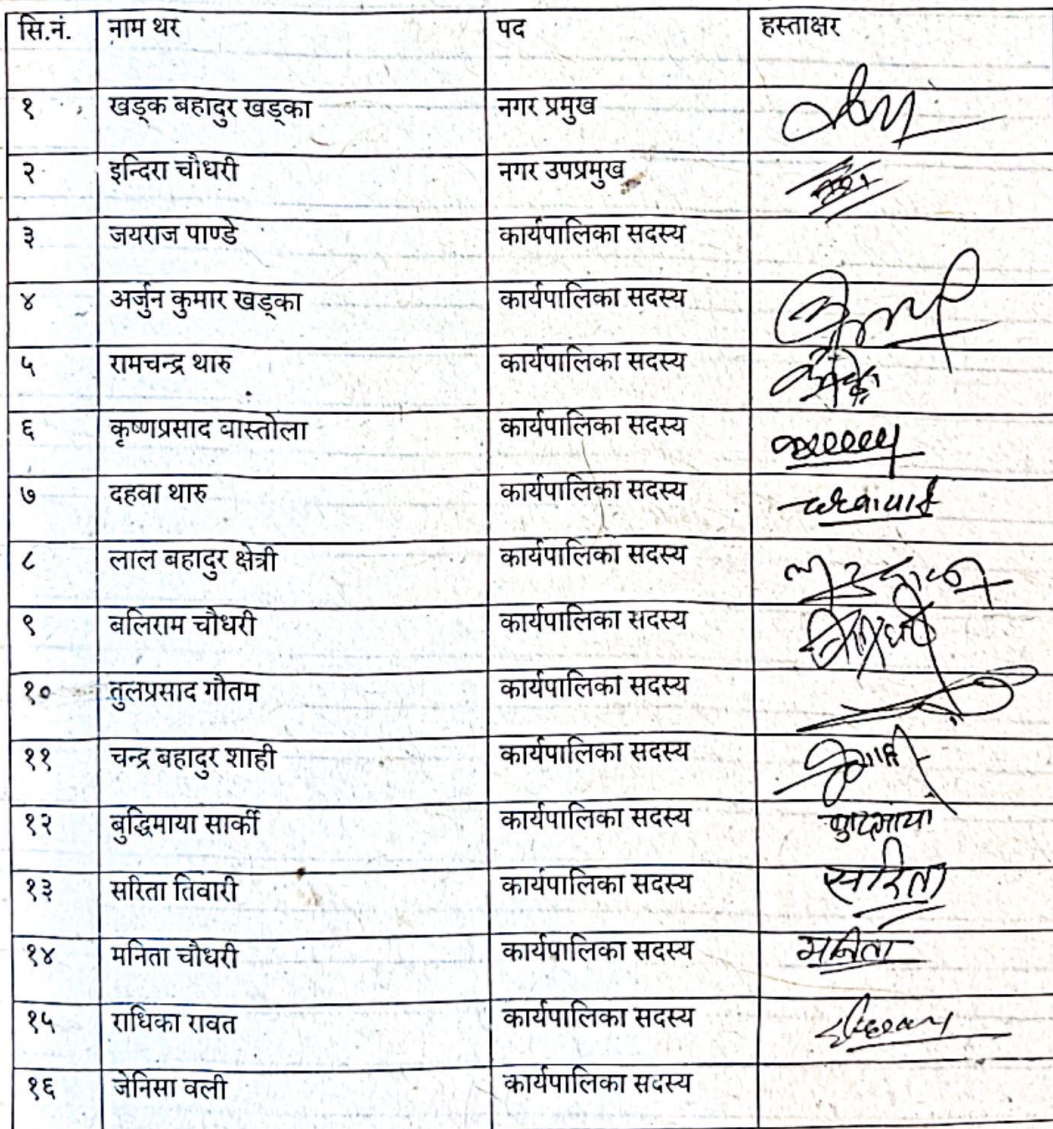 सि.नं. नाम थर पद हस्ताक्षर
१ खड्क बहादुर खड्का नगर प्रमुख
२ इन्दिरा चौधरी नगर उपप्रमुख
३ जयराज पाण्डे कार्यपालिका सदस्य
४ अर्जुन कुमार खड्का कार्यपालिका सदस्य
५ रामचन्द्र थारु कार्यपालिका सदस्य
६ कृष्णप्रसाद वास्तोला कार्यपालिका सदस्य
७ दहवा थारु कार्यपालिका सदस्य
८ लाल बहादुर क्षेत्री कार्यपालिका सदस्य
९ बलिराम चौधरी कार्यपालिका सदस्य
१० तुलप्रसाद गौतम कार्यपालिका सदस्य
११ चन्द्र बहादुर शाही कार्यपालिका सदस्य
१२ बुद्धिमाया सार्की कार्यपालिका सदस्य
१३ सरिता तिवारी कार्यपालिका सदस्य सरिता
१४ मनिता चौधरी कार्यपालिका सदस्य मनिता
१५ राधिका रावत कार्यपालिका सदस्य
१६ जेनिसा वली कार्यपालिका सदस्य